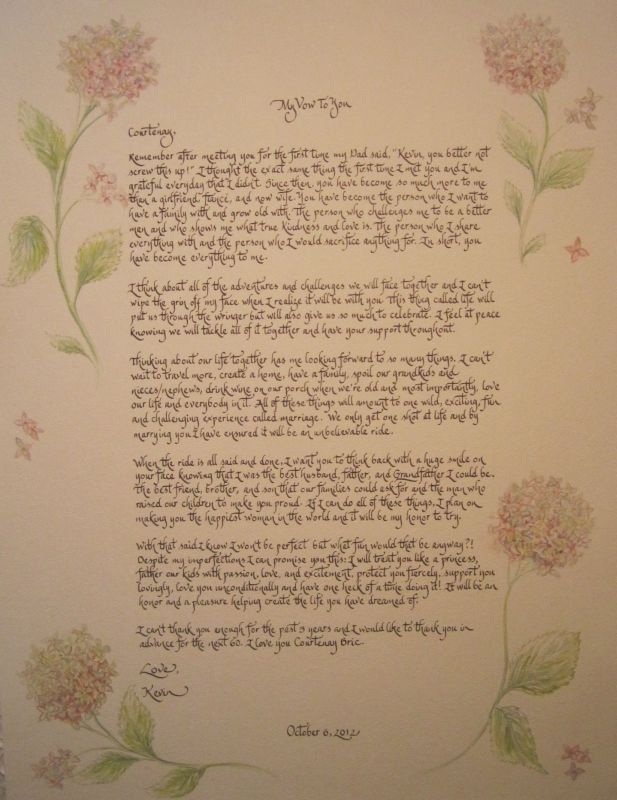 My Vow To You
Courtenay,
Remember after meeting you for the first time my Dad said, "Kevin, you better not
screw this up!" I thought the exact same thing the first time I met you and I'm
grateful everyday that I didn't. Since then, you have become so much more to me
than a girlfriend, fiancé, and now wife. You have become the person who I want to
have a family with and grow old with. The person who challenges me to be a better
men and who shows me what true kindness and love is. The person who I share
everything with and the person who I would sacrifice anything for. In short, you
have become everything to me.
I think about all of the adventures and challenges we will face together and I can't
wipe the grin off my face when I realize it will be with you. This thing called life will
put us through the wringer but will also give us so much to celebrate. I feel at peace
knowing we will tackle all of it together and have your support throughout.
Thinking about our life together has me looking forward to so many things. I can't
wait to travel more, create a home, have a family, spoil our grandkids and
nieces/nephews, drink wine on our porch when we're old and most importantly, love
our life and everybody in it. All of these things will amount to one wild, exciting, fun
and challenging experience called marriage. We only get one shot at life and by
marrying you I have ensured it will be an unbelievable ride.
When the ride is all said and done, I want you to think back with a huge smile on
your face knowing that I was the best husband, father, and Grandfather I could be.
The best friend, brother, and son that our families could ask for and the man who
raised our children to make you proud. If I can do all of these things, I plan on
making you the happiest woman in the world and it will be my honor to try.
With that said I know I won't be perfect but what fun would that be anyway?!
Despite my imperfections I can promise you this: I will treat you like a princess,
father our kids with passion, love, and excitement, protect you fiercely, support you
lovingly, love you unconditionally and have one heck of a time doing it! It will be an
honor and a pleasure helping create the life you have dreamed of.
I can't thank you enough for the past 5 years and I would like to thank you in
advance for the next 60. I love you Courtenay Bric.
Love,
Kevin
October 6, 2012